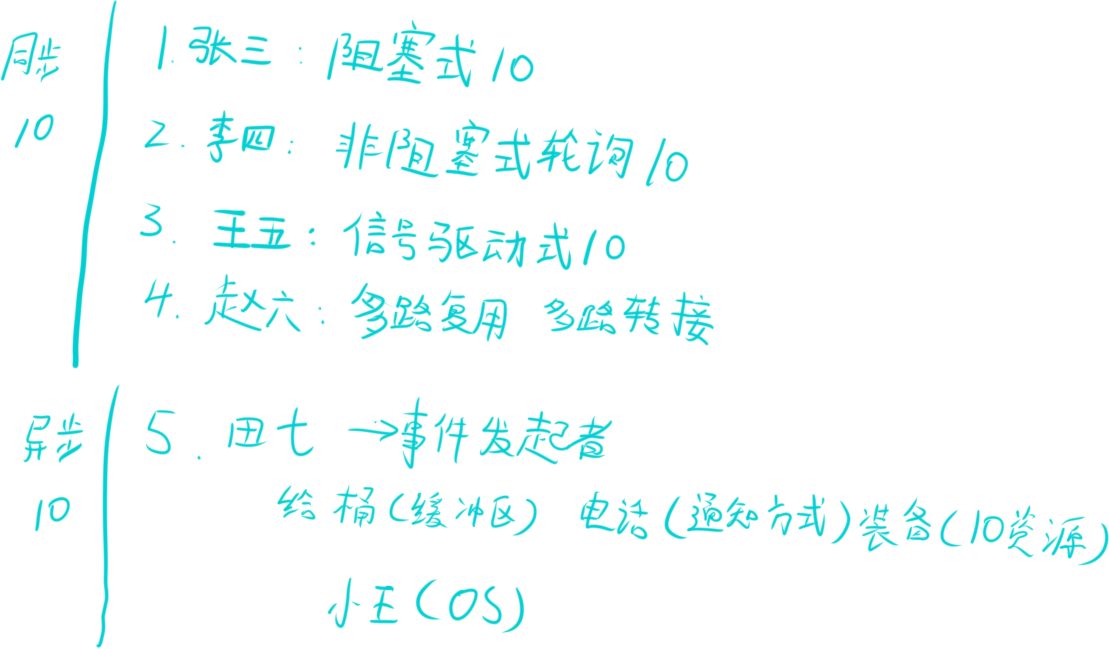 同步 IO
1. 张三: 阻塞式IO
2. 李四: 非阻塞式轮询IO
3. 王五: 信号驱动式IO
4. 赵六: 多路复用 多路转接
异步 IO
5. 田七 →事件发起者
给桶(缓冲区) 电话(通知方式) 装备(IO资源)
小王(OS)